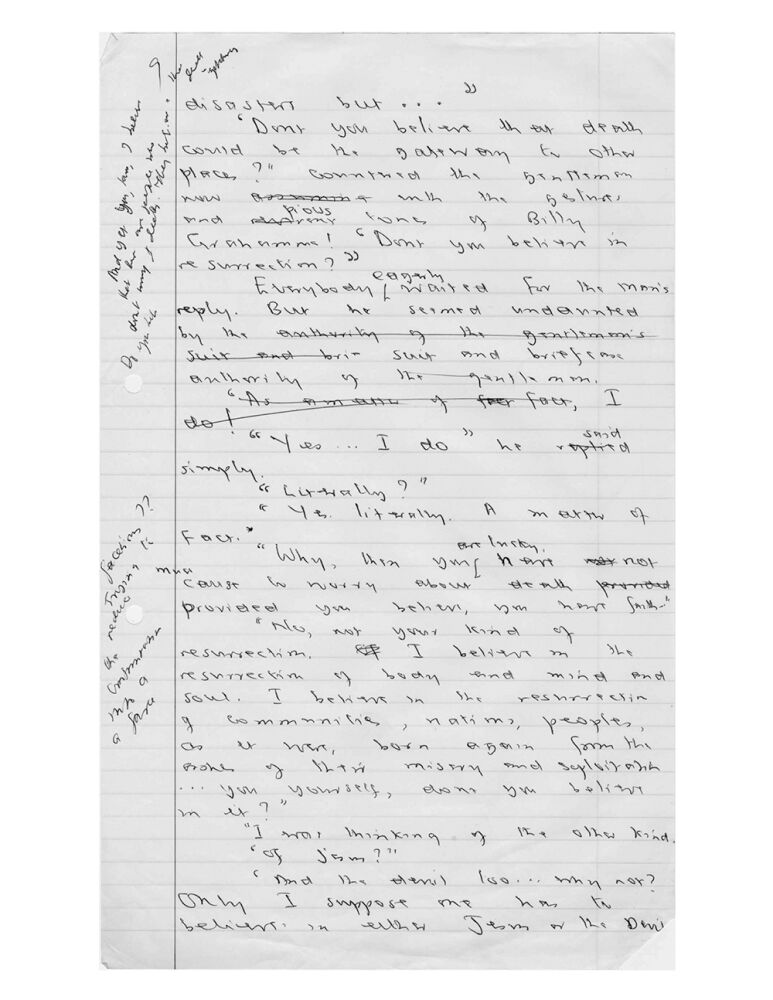 disasters but ... "
"Dont you believe that death
could be the gateway to other
places?" continued the gentleman
now assuming with the gestures
pious
and tone of Billy
Grahamme! "Dont you believe in
resurrection?"
eagerly
Everybody waited for the man's
reply. But he seemed undaunted
by the authority of the gentleman's
suit and brie suit and briefcase
authority of the gentleman.
"As a matter of fact, I
do!
said
"Yes ... I do" he replied
simply.
"Literally?"
"Yes. literally. A matter of
fact."
are lucky.
"Why, then you have not
much
cause to worry about death provided
provided you believe, you have faith-"
"No, not your kind of
resurrection. I believe in the
resurrection of body and mind and
soul. I believe in the resurrection
of communities, nations, peoples,
as it were, born again from the
ashes of their misery and exploitation
... you yourself, dont you believe
in it?"
"I was thinking of the other kind.
"Of Jesus?"
"And the devil too... why not?
Only I suppose one has to
believe in either Jesus or the Devil
And yet you know, I believe
that
dont
the dead
facetious??
the trying to
reduce
conversation
into a
a farce